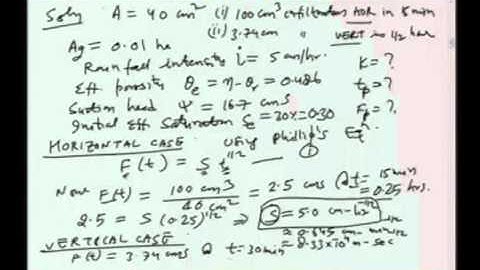 Soln A = 40 cm² (i) 100 cm³ infiltrates HOR in 15 min
(ii) 3.74 cm " VERT in 1/2 hour
Ag = 0.01 ha
Rainfall intensity i = 5 cm/hr. K = ?
Eff porosity θe = η-θr = 0.486 tp = ?
Suction head Ψ = 16.7 cms Fp = ?
Initial Eff Saturation Se = 30% = 0.30
HORIZONTAL CASE using Phillip's Eqn
F(t) = S t^1/2 — ①
Now F(t) = 100 cm3 / 40 cm² = 2.5 cms @ t = 15 min = 0.25 hrs.
2.5 = S (0.25)^1/2 ⇒ S = 5.0 cm-hr^-1/2
= 0.645 cm-min^-1/2
VERTICAL CASE = 8.33x10⁻⁴ m-sec
F(t) = 3.74 cms @ t = 30 min